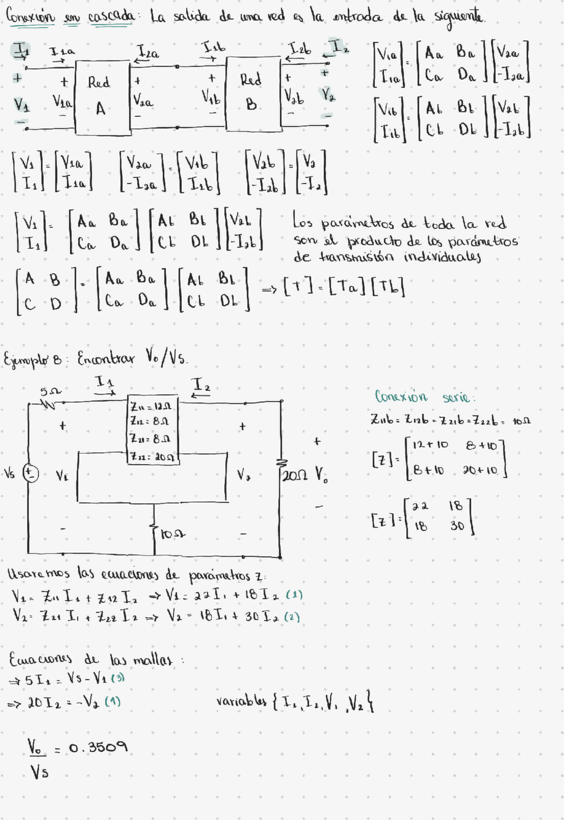 Conexión en cascada: La salida de una red es la entrada de la siguiente.
I₁ I₁a I₂a I₁b I₂b I₂
+ + + + + +
V₁ V₁a Red A V₂a V₁b Red B V₂b V₂
- - - - - -
[V₁a I₁a] = [Aa Ba Ca Da] [V₂a -I₂a]
[V₁b I₁b] = [Ab Bb Cb Db] [V₂b -I₂b]
[V₁ I₁] = [V₁a I₁a] [V₂a -I₂a] = [V₁b I₁b] [V₂b -I₂b] = [V₂ -I₂]
[V₁ I₁] = [Aa Ba Ca Da] [Ab Bb Cb Db] [V₂b -I₂b]
Los parámetros de toda la red
son el producto de los parámetros
de transmisión individuales
[A B C D] = [Aa Ba Ca Da] [Ab Bb Cb Db] => [T] = [Ta] [Tb]
Ejemplo 8: Encontrar V₀/Vs.
5Ω I₁ I₂
Z₁₁ = 12Ω
Z₁₂ = 8Ω
Z₂₁ = 8Ω
Z₂₂ = 20Ω
+ + +
Vs V₁ V₂ 20Ω V₀
- - -
10Ω
Conexión serie:
Z₁₁b = Z₁₂b = Z₂₁b = Z₂₂b = 10Ω
[z] = [12+10 8+10 8+10 20+10]
[z] = [22 18 18 30]
Usaremos las ecuaciones de parámetros z:
V₁ = Z₁₁ I₁ + Z₁₂ I₂ => V₁ = 22 I₁ + 18 I₂ (1)
V₂ = Z₂₁ I₁ + Z₂₂ I₂ => V₂ = 18 I₁ + 30 I₂ (2)
Ecuaciones de las mallas:
=> 5 I₁ = Vs - V₁ (3)
=> 20 I₂ = -V₂ (4)
variables { I₁, I₂, V₁, V₂ }
V₀ = 0.3509
Vs